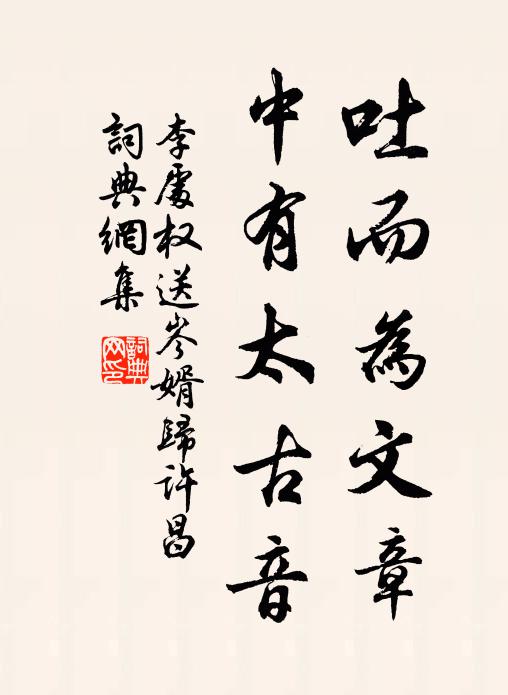 吐而為文章
中有太古音
李處权送岑婿歸许昌
詞典網集
詞典
网印